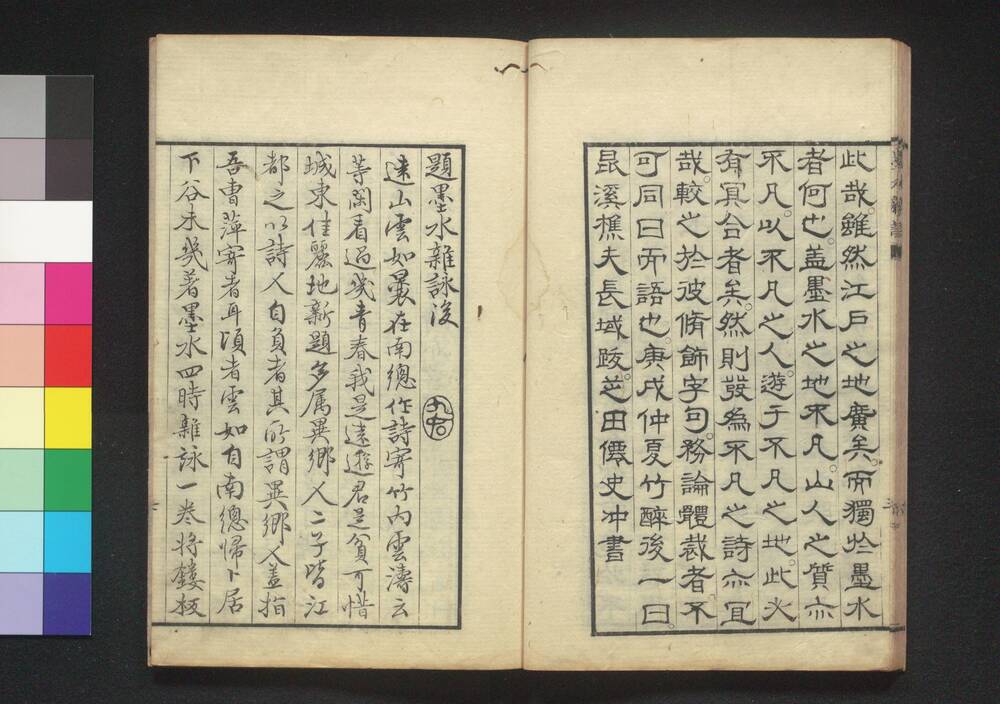 此哉。雖然江戸之地廣矣。而獨於墨水
者何也。盖墨水之地不凡。山人之質亦
不凡。以不凡之人。遊于不凡之地。此必
有冥合者矣。然則發為不凡之詩亦宜
哉。較之於彼脩飾字句。務論體裁者。不
可同日而語也。庚戌仲夏竹醉後一日。
昆溪樵夫長域跋。芝田僊史冲書
題墨水雜詠後
遠山雲如曩在南總作詩寄竹内雲濤云
等閑看過幾青春我是遠遊君是貧可惜
城東佳麗地新題多属異郷人二子皆江
都之以詩人自負者其所謂異郷人盖指
吾曹萍寄者耳頃者雲如自南總帰卜居
下谷未幾著墨水四時雜詠一巻将鏤板